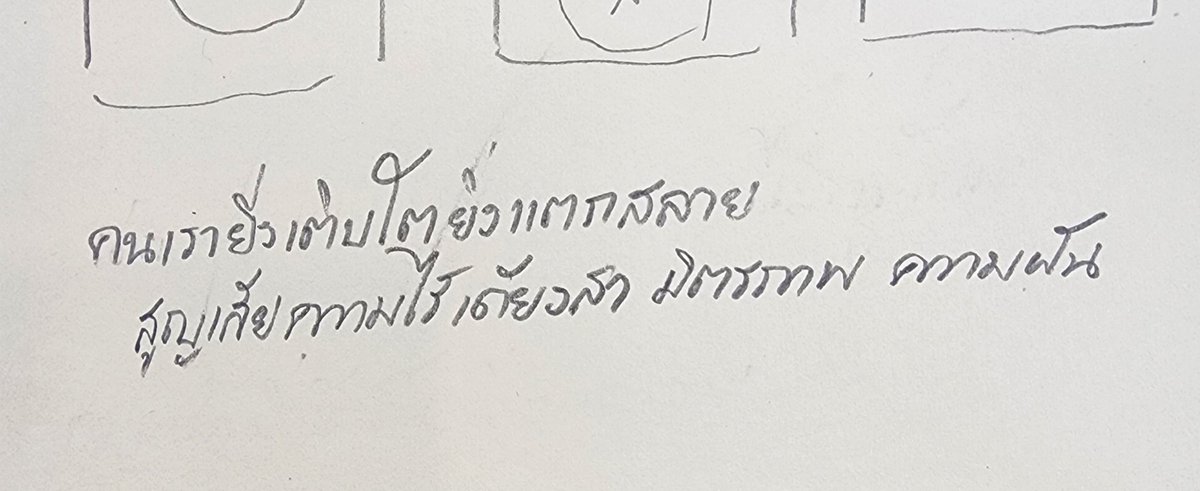 คนเรายิ่งเติบโตยิ่งแตกสลาย
สูญเสียความไร้เดียงสา มิตรภาพ ความฝัน